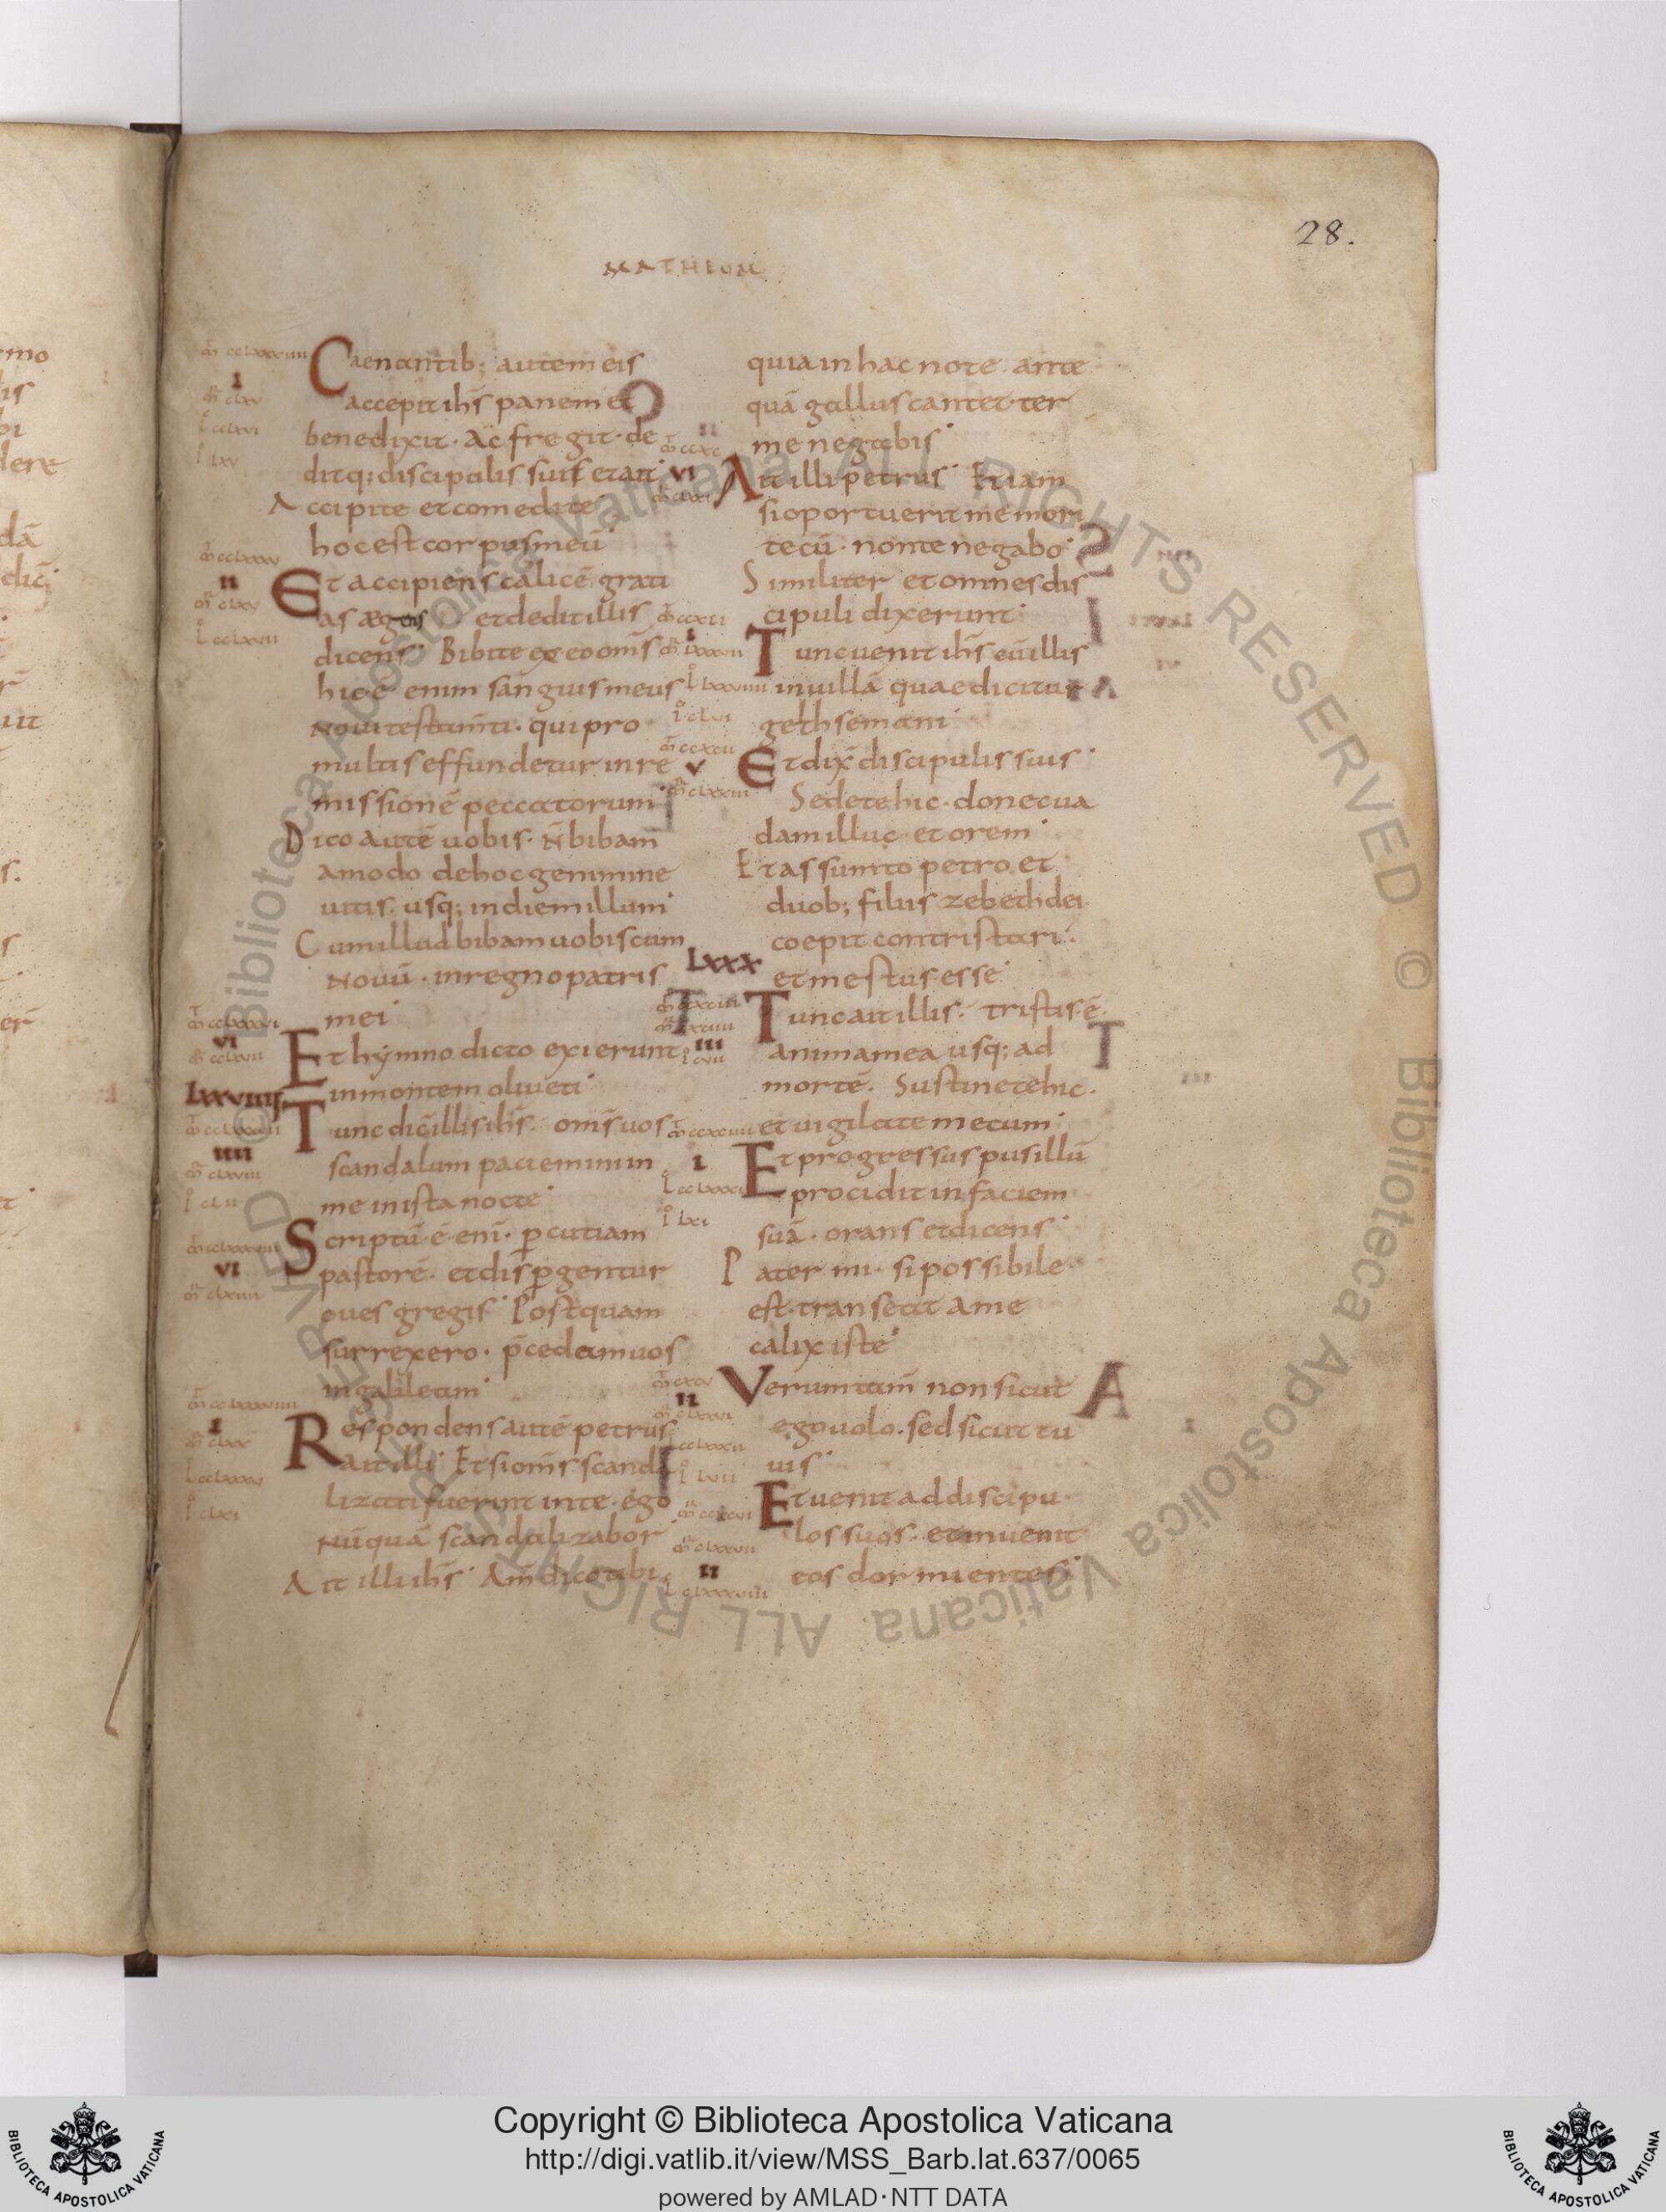 28.
MATHEUM
Caenantib; autem eis
accepit ihs̄ panem et
benedixit. Ac fregit. de
ditq; discipulis suis et ait
Accipite et comedite
hoc est corpus meū
Et accipiens calicē grati
as et dedit illis
dicens. Bibite ex eo om̄s
hic. ē. enim sanguis meus
noui testam̄ti. qui pro
multis effundetur in re
missionē peccatorum
Dico autē uobis. n̄ bibam
amodo de hoc genimine
uitis. usq; in diem illum
Cum illud bibam uobiscum
nouū. in regno patris
mei
Et hymno dicto exierunt
in montem oliueti
LXXVIIII
Tunc dic̄ illis ihs̄. om̄s uos
scandalum paciemini in
me in ista nocte
Scriptū ē. enī. p̱cutiam
pastorē. et disp̱gentur
oues gregis. Postquam
surrexero. p̄cedam uos
in galileam
Respondens autē petrus
ait illi. Et si om̄s scanda
lizati fuerint in te. ego
nūquā scandalizabor
Ait illi ihs̄. Am̄ dico tibi.
quia in hac note. ante
quā gallus cantet. ter
me negabis
Ait illi petrus. Etiam
si oportuerit me mori
tecū. non te negabo
Similiter et omnes dis
cipuli dixerunt.
Tunc uenit ihs̄ cū illis
in uillā quae dicitur
gethsemani
Et dix̄ discipulis suis.
Sedete hic. donec ua
dam illuc. et orem
Et assumto petro. et
duob; filiis zebethdei
coepit contristari.
et mestus esse
LXXX
Tunc ait illis. tristis. ē.
anima mea usq; ad
mortē. Sustinete hic.
et uigilate mecum
Et progressus pusillū
procidit in faciem
suā. orans et dicens
Pater mi. si possibile
est. transeat a me
calix iste
Verumtam̄ non sicut
ego uolo. sed sicut tu
uis
Et uenit ad discipu
los suos. et inuenit
eos dormientes.
Copyright © Biblioteca Apostolica Vaticana
http://digi.vatlib.it/view/MSS_Barb.lat.637/0065
powered by AMLAD・NTT DATA